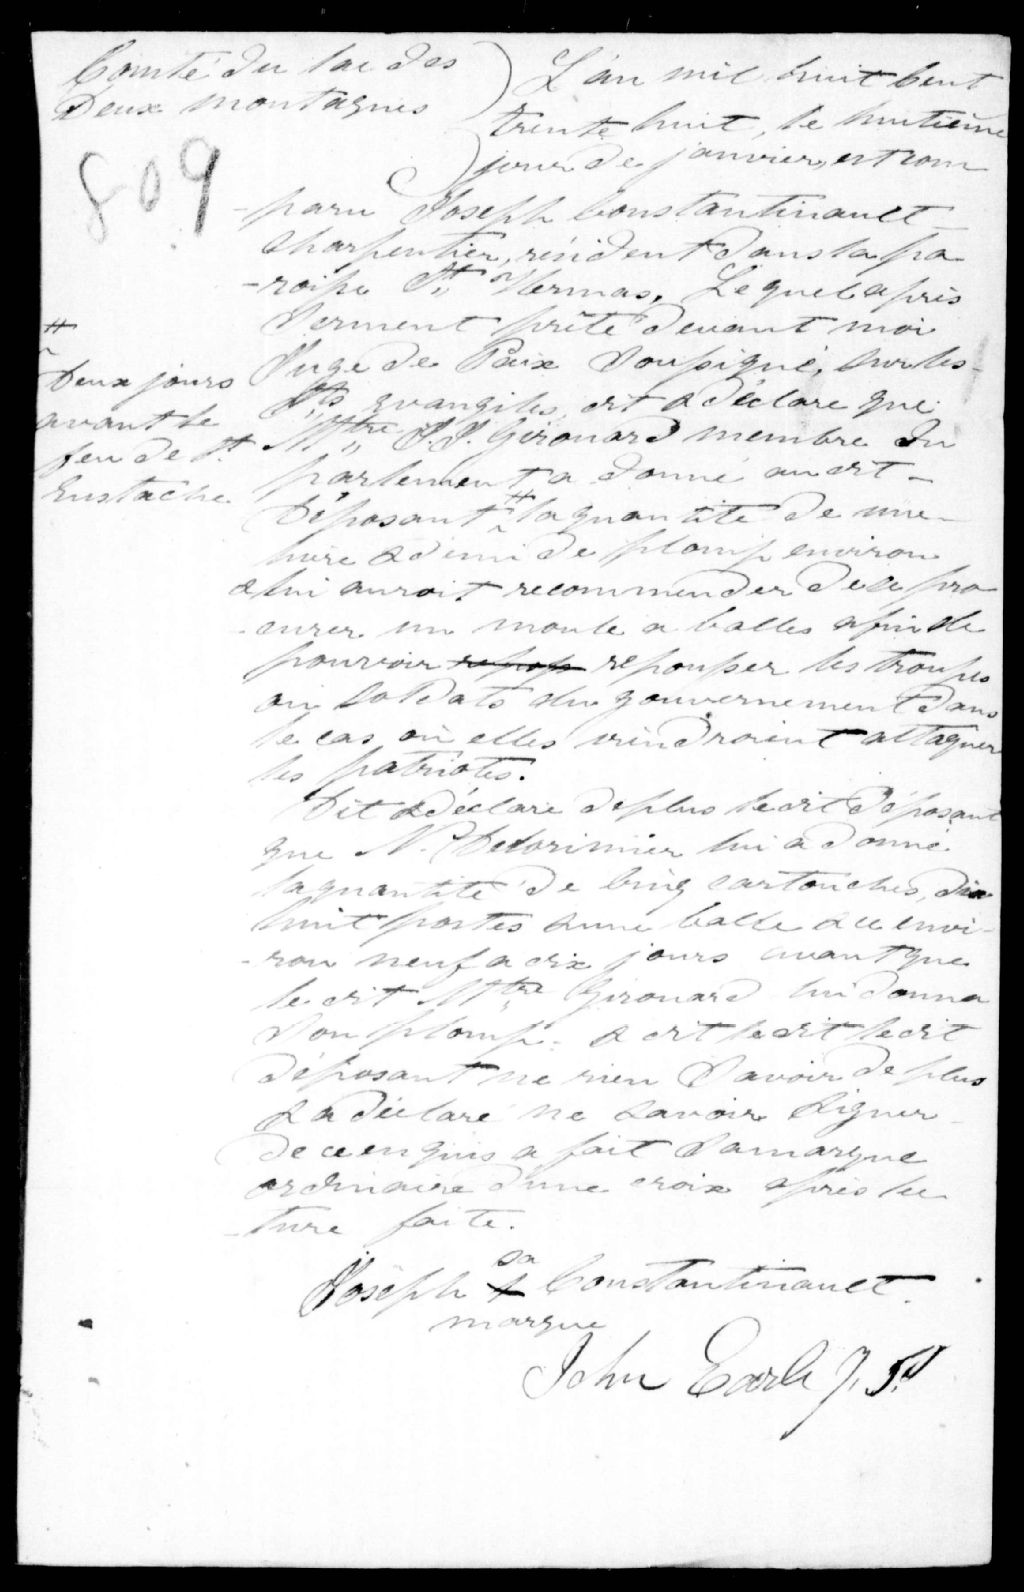 Comté du lac des
Deux montagnes
809
L'an mil huit Cent
trente huit, le huitième
jour de janvier, est com
-paru Joseph Constantinault
charpentier, résident dans la pa
-roisse St. Hermas, Lequel après
Serment prêté devant moi
Juge de Paix Soussigné, sur les
Sts evangiles, dit & déclare que
Mtre J.J. Girouard membre du
parlement a donné au dit
Déposant # la quantité de une
livre & demi de plomp environ
& lui auroit recommender de se pro
-curer un moule a balles afin de
pouvoir repousser les troupes
ou soldats du gouvernement dans
le cas où elles viendroient attaquer
les patriotes.
#
Deux jours
avant le
feu de St.
Eustache
Dit & déclare deplus le dit déposant
que N. Delorimier lui a donné
la quantité de Cinq cartouches, dix
huit postes & une balle & ce envi-
-ron neuf a dix jours avant que
le dit Mtre Girouard lui donna
Son plomp. & dit le dit le dit
déposant ne rien Savoir de plus
& a déclaré ne savoir signer
de ce enquis a fait Sa marque
ordinaire d'une croix après lec
-ture faite.
Joseph x Constantinault
sa
marque
John Earle J. P.